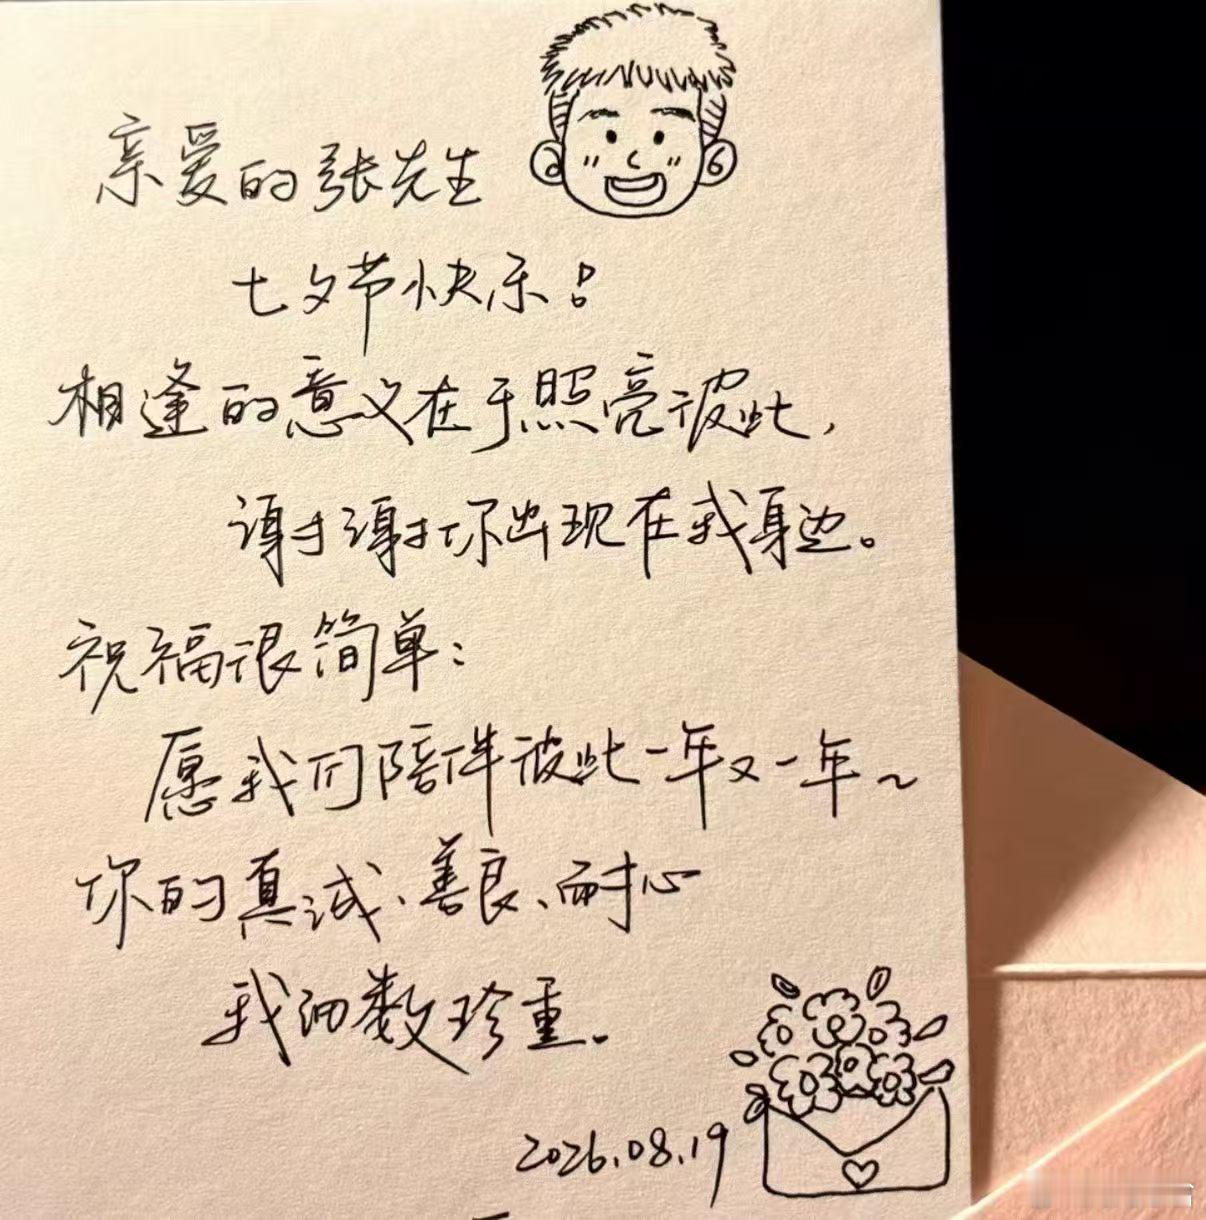 亲爱的张先生
七夕节快乐！
相逢的意义在于照亮彼此，
谢谢你出现在我身边。
祝福很简单：
愿我们陪伴彼此一年又一年～
你的真诚、善良、耐心
我细数珍重。
2026.08.19